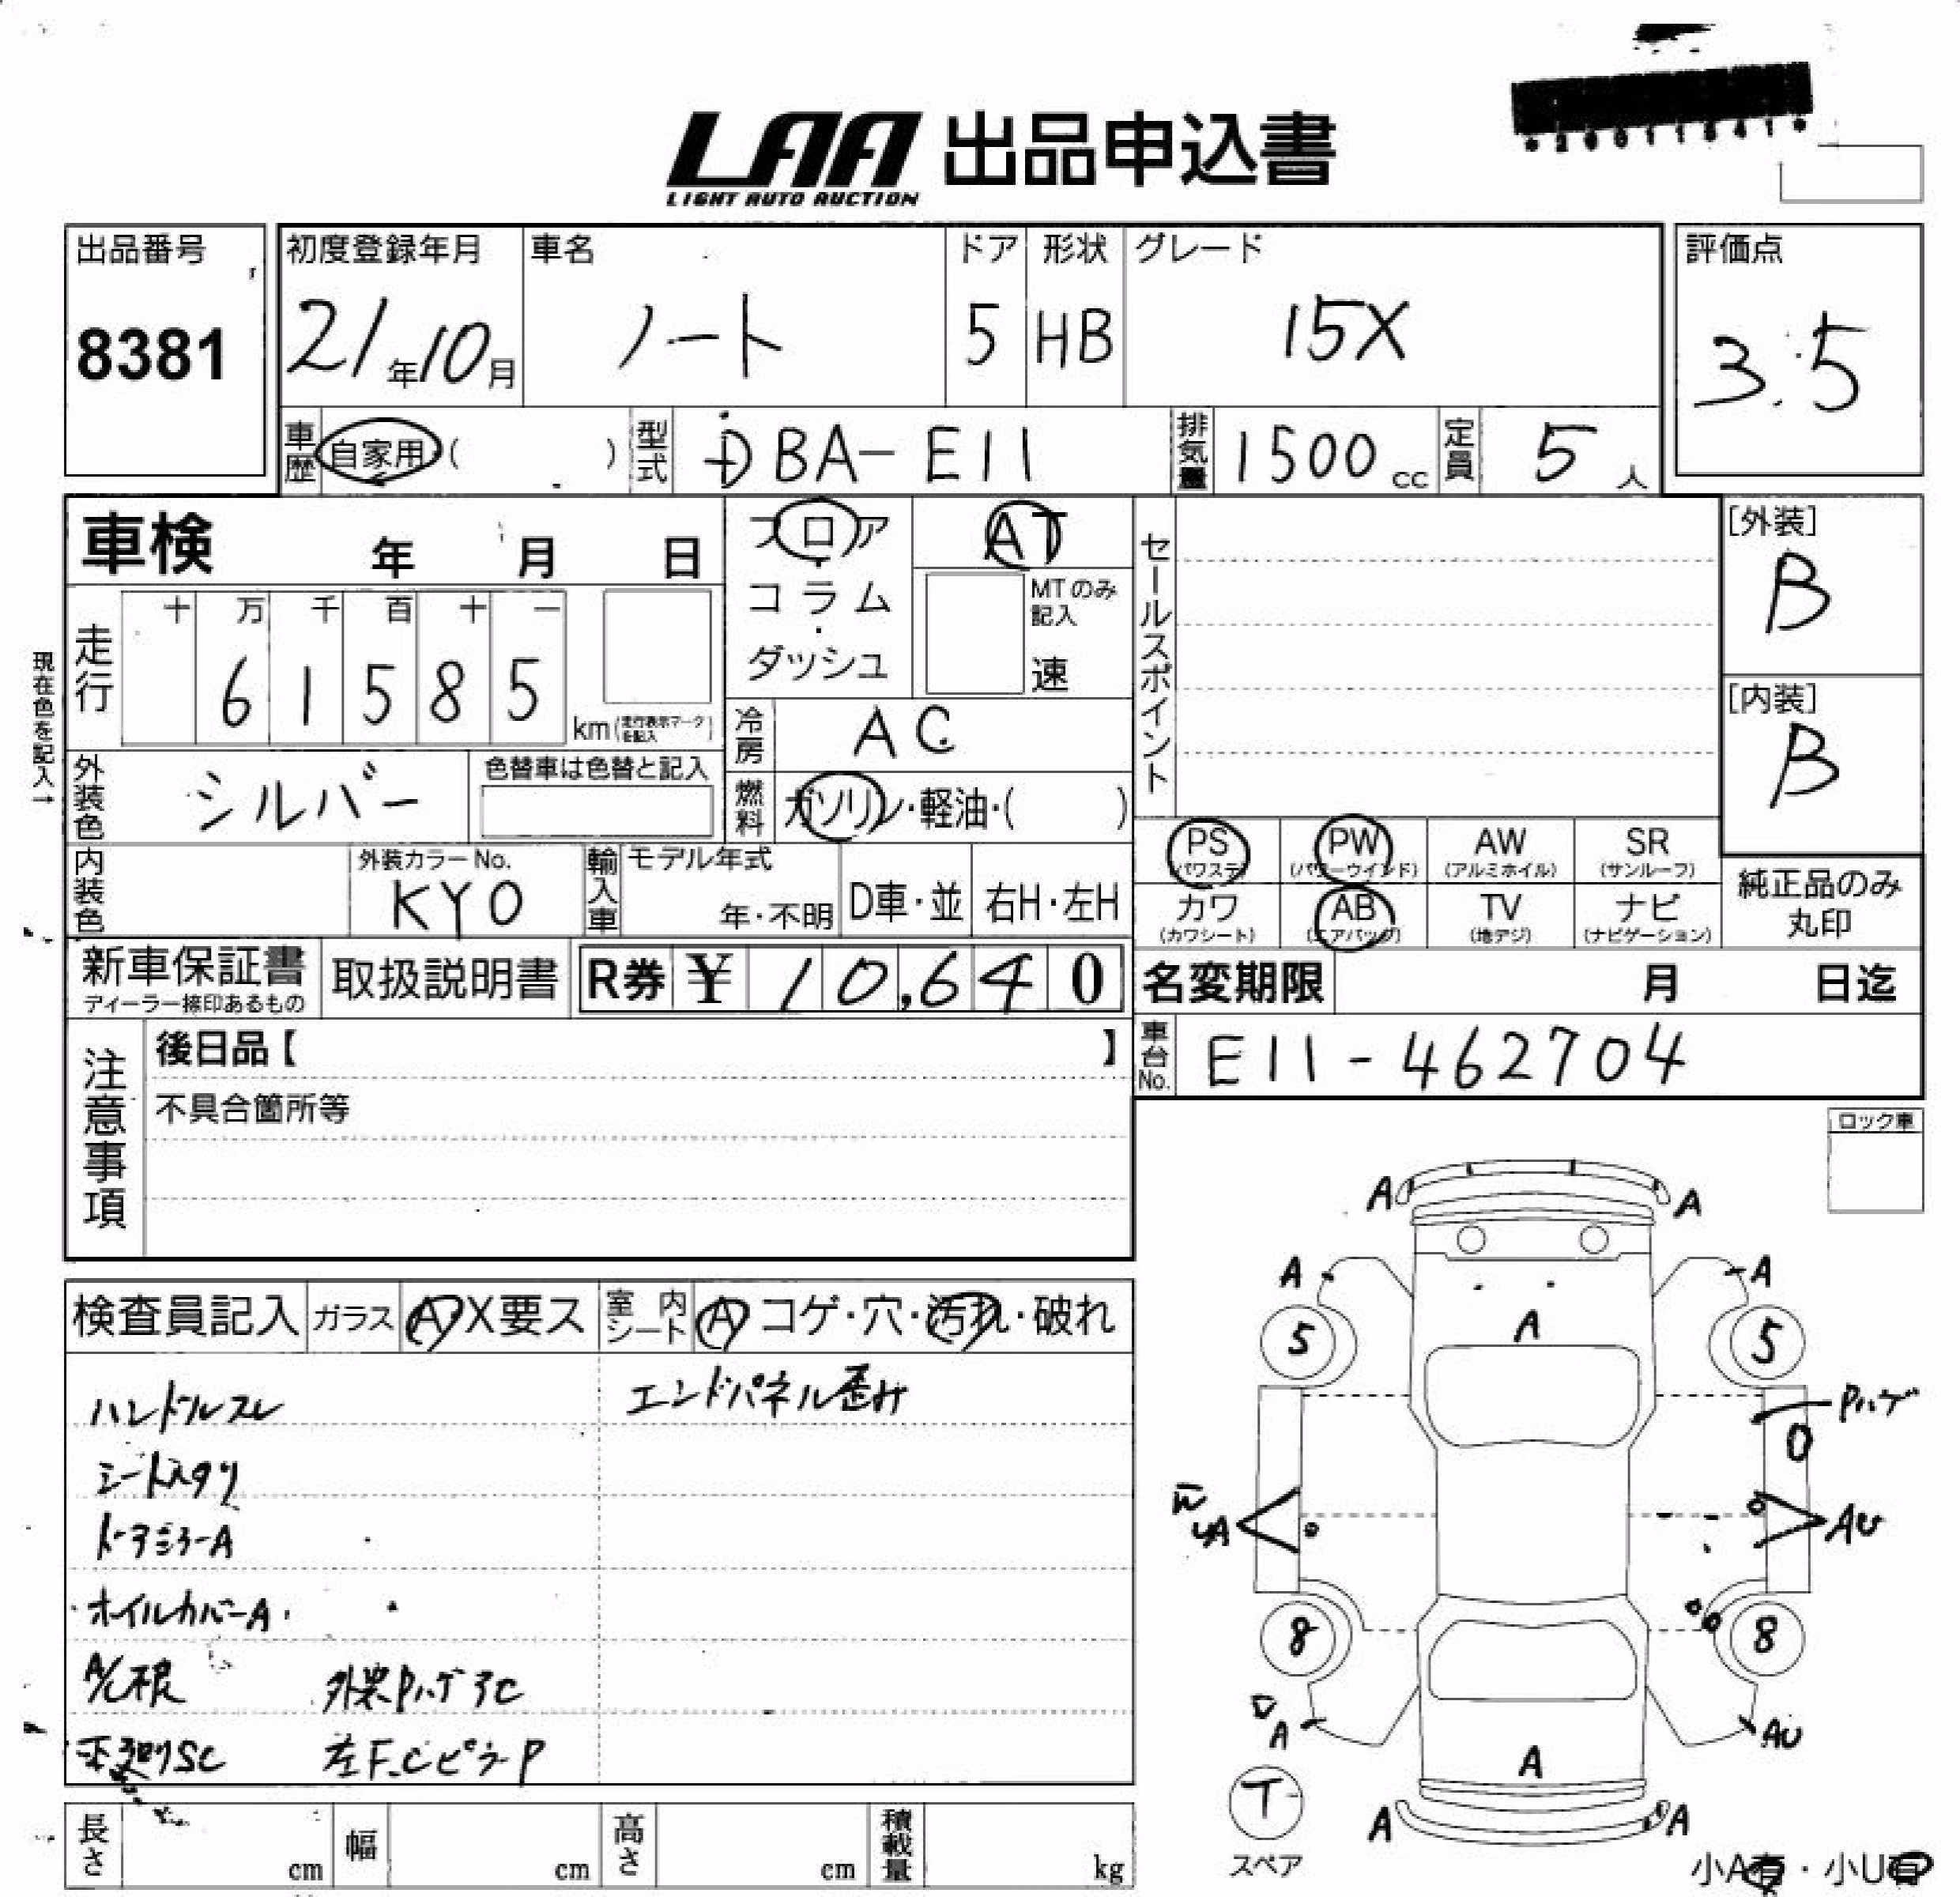 LAA 出品申込書
LIGHT AUTO AUCTION
*26011341*
出品番号
8381
初度登録年月
21年10月
車名
ノート
ドア
5
形状
HB
グレード
15X
評価点
3.5
車歴 自家用 ( )
型式 DBA-E11
排気量 1500 cc
定員 5 人
車検 年 月 日
フロア
コラム
・
ダッシュ
AT
MTのみ
記入
速
セールスポイント
[外装]
B
[内装]
B
現在色を記入→
走行
十 万 千 百 十 一
6 1 5 8 5
km (走行表示マークを記入)
冷房 AC
外装色 シルバー
色替車は色替と記入
燃料 ガソリン・軽油・( )
PS (パワステ)
PW (パワーウインド)
AW (アルミホイル)
SR (サンルーフ)
カワ (カワシート)
AB (エアバッグ)
TV (地デジ)
ナビ (ナビゲーション)
純正品のみ
丸印
内装色
外装カラーNo.
KY0
輸入車
モデル年式
年・不明
D車・並
右H・左H
新車保証書
ディーラー捺印あるもの
取扱説明書
R券 ¥ 10,640
名変期限 月 日迄
車台No. E11-462704
注意事項
後日品【 】
不具合箇所等
ロック車
検査員記入
ガラス A・X要ス
室内シート A コゲ・穴・汚れ・破れ
ハンドルスレ
エンドパネル歪み
シートスタリ
ドアミラーA
ホイルカバーA
A/C根
外装Pハゲ
下廻りSC
左F.CピラーP
A A
A A
5 A 5
Pハゲ
0
AU
8 8
A AU
A
T
スペア
A A
長さ cm
幅 cm
高さ cm
積載量 kg
小A有・小U有